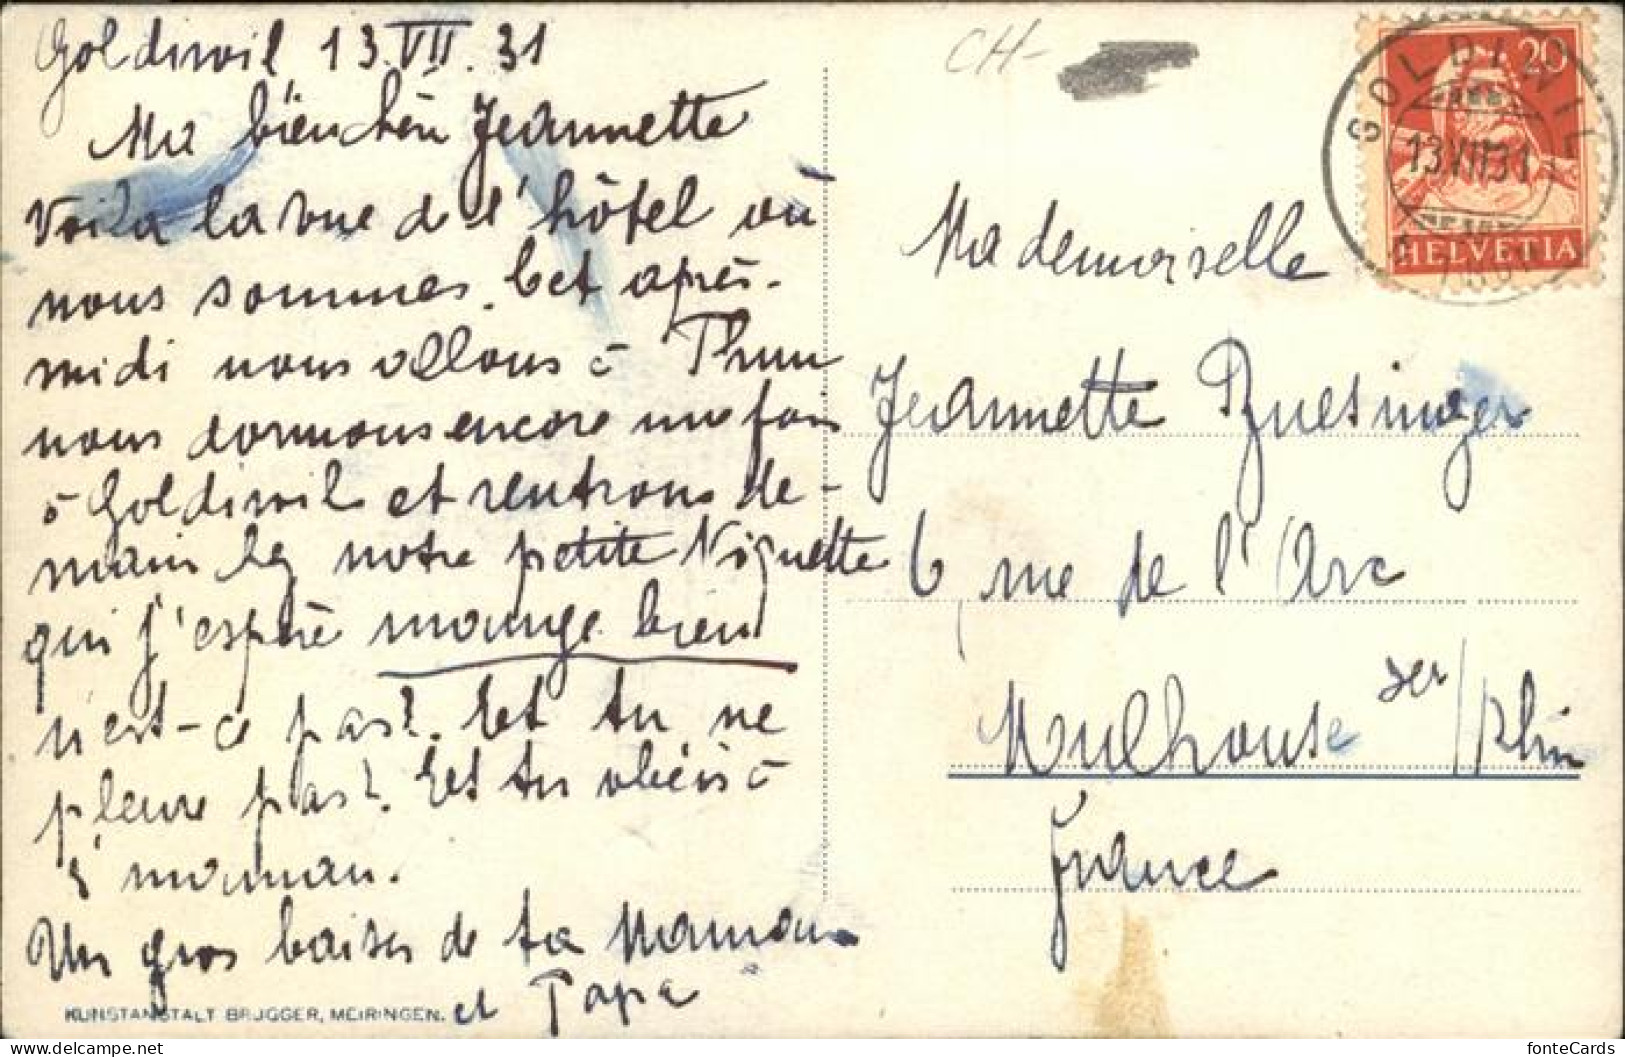 Goldiwil 13.VII.31
Ma bien chère Jeannette
Voila la vue de l'hôtel où
nous sommes. Cet après-
midi nous allons à Thun
nous dormons encore une fois
à Goldiwil et rentrons de-
main notre petite Niquette
qui j'espère mange bien
n'est-ce pas?. Et tu ne
pleure pas?. Et tu obéis à
maman.
Un gros baiser de ta Maman
et Papa
KUNSTANSTALT BRÜGGER, MEIRINGEN.
CH-
20
HELVETIA
GOLDIWIL
13.VII.31
Mademoiselle
Jeannette
6 rue de l'Arc
Mulhouse /Rhin
France
fonteCards